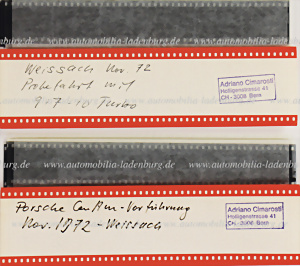 Weissach Nov. 72
Probefahrt mit
917-10 Turbo
Adriano Cimarosti
Heiligenstrasse 41
CH-3006 Bern
www.automobilia-ladenburg.de www.automobilia-ladenburg.de
www.automobilia-ladenburg.de www.automobilia-ladenburg.de
Porsche CanAm-Vorführung
Nov. 1972 - Weissach
Adriano Cimarosti
Heiligenstrasse 41
CH-3006 Bern